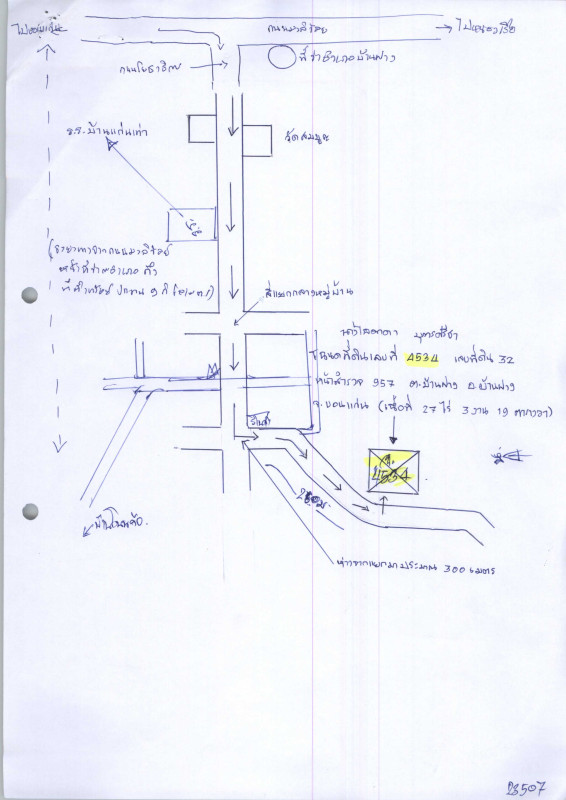 ไปขอนแก่น
ถนนมะลิวัลย์
ไปหนองเรือ
ที่ว่าอำเภอบ้านฝาง
ถนนโยธาธิการ
ร.ร.บ้านแก่นเท่า
วัด
(ระยะทางจากถนนมะลิวัลย์
หน้าที่ว่าการอำเภอ ถึง
ที่ตั้งทรัพย์ ประมาณ 9 กิโลเมตร)
สี่แยกกลางหมู่บ้าน
โฉนดที่ดินเลขที่ 4534 เลขที่ดิน 32
หน้าสำรวจ 957 ต.บ้านฝาง อ.บ้านฝาง
จ.ขอนแก่น (เนื้อที่ 27 ไร่ 3 งาน 19 ตารางวา)
ร้านค้า
4534
ห่างจากแยกมาประมาณ 300 เมตร
23507